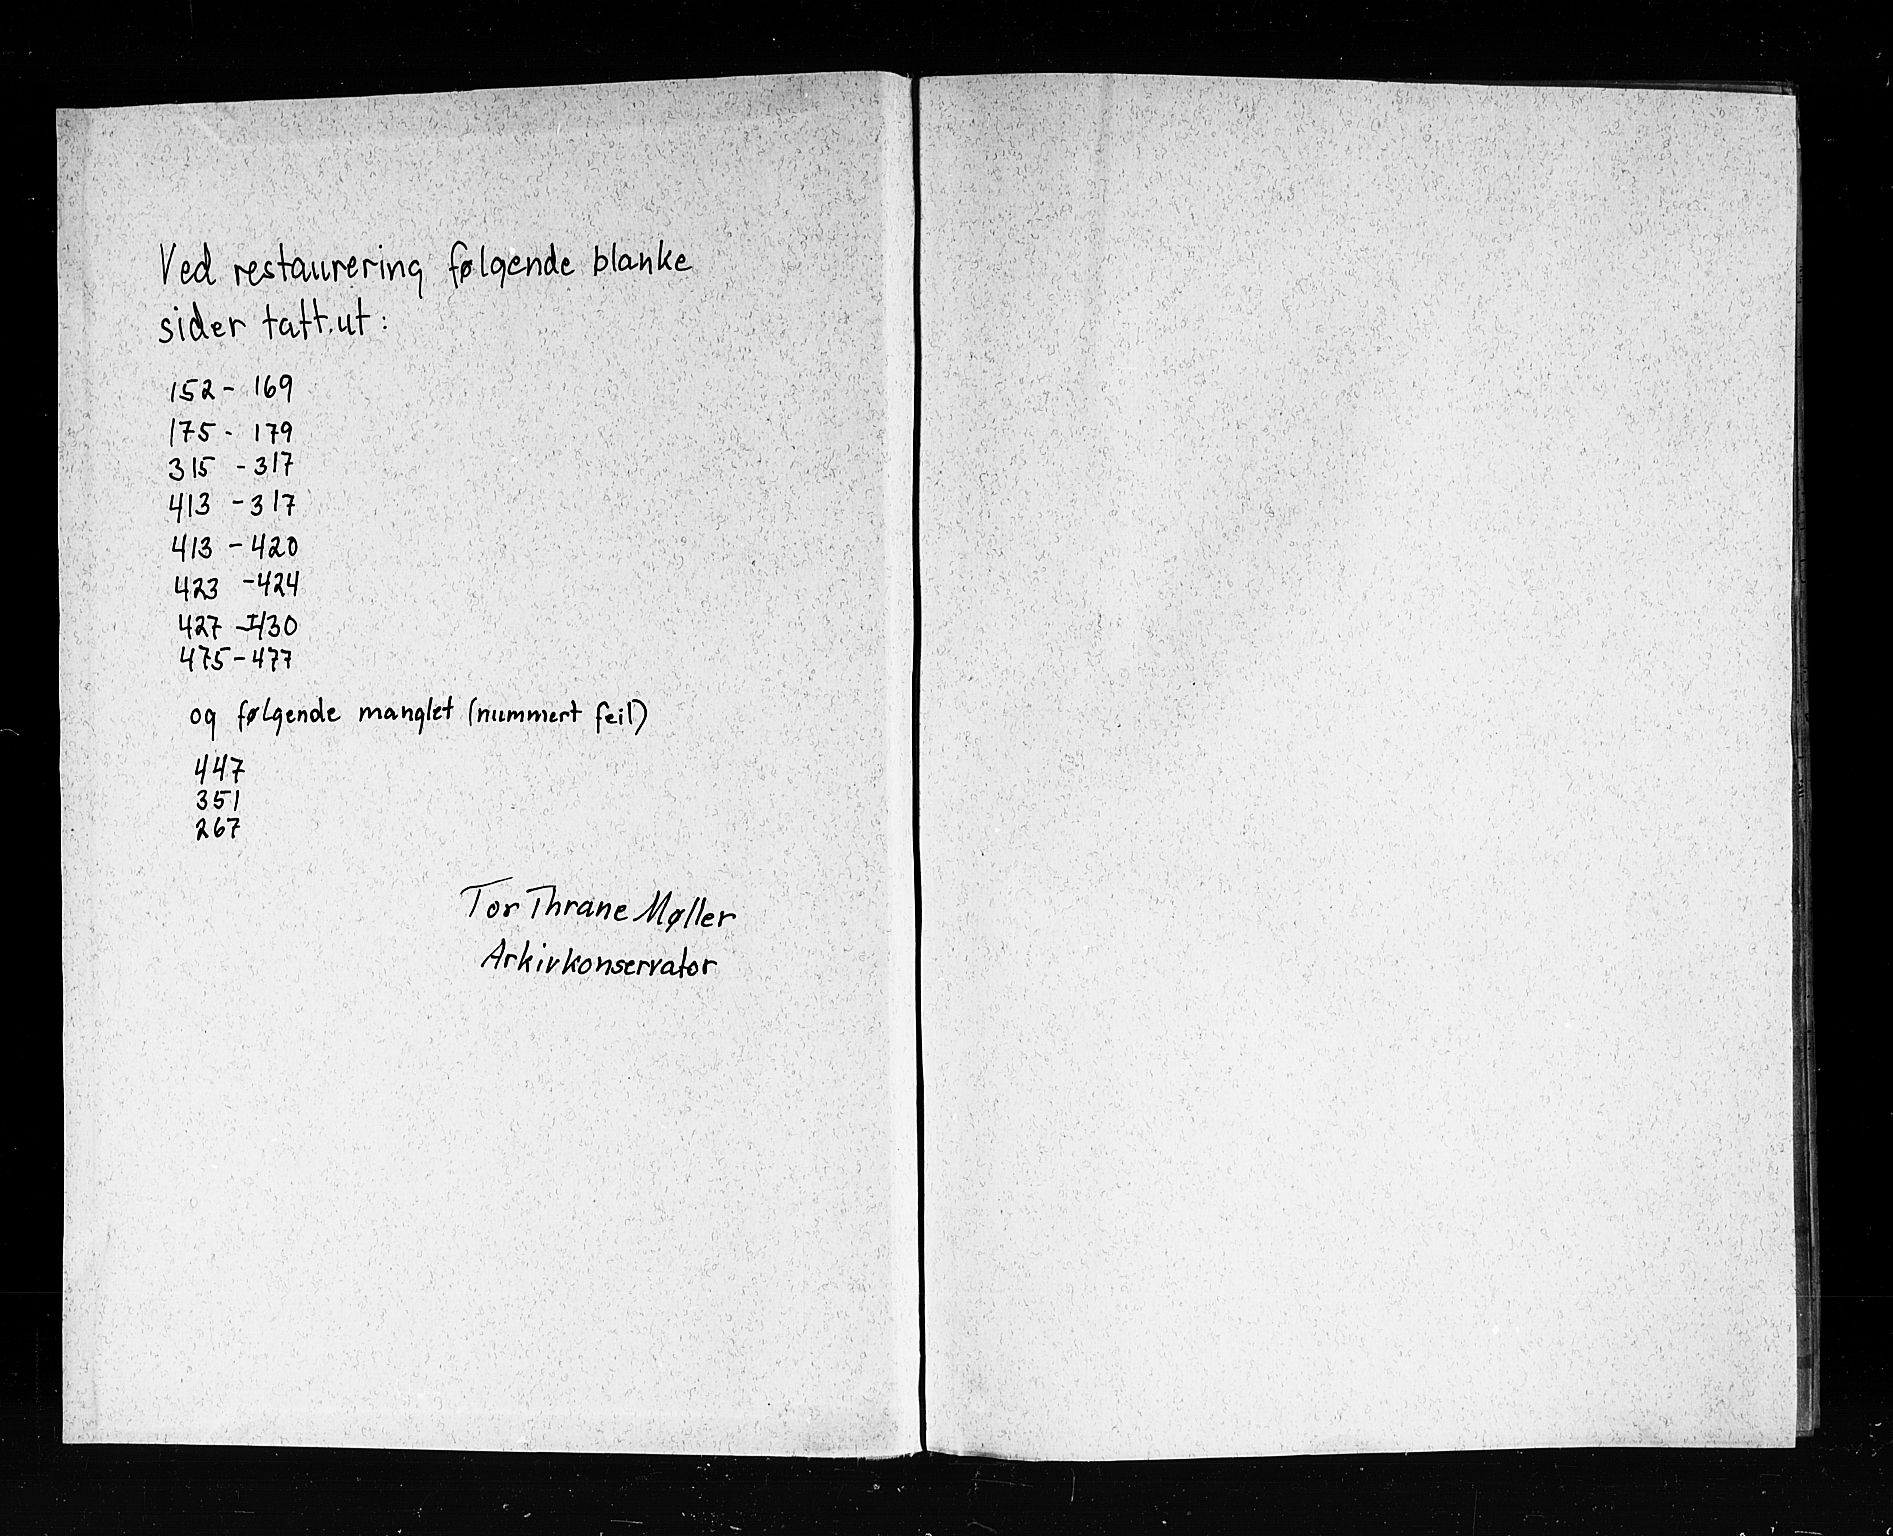 Ved restaurering følgende blanke
sider tatt.ut:
152 - 169
175 - 179
315 - 317
413 - 317
413 - 420
423 - 424
427 - 430
475 - 477
og følgende manglet (nummert feil)
447
351
267
Tor Thrane Møller
Arkivkonservator